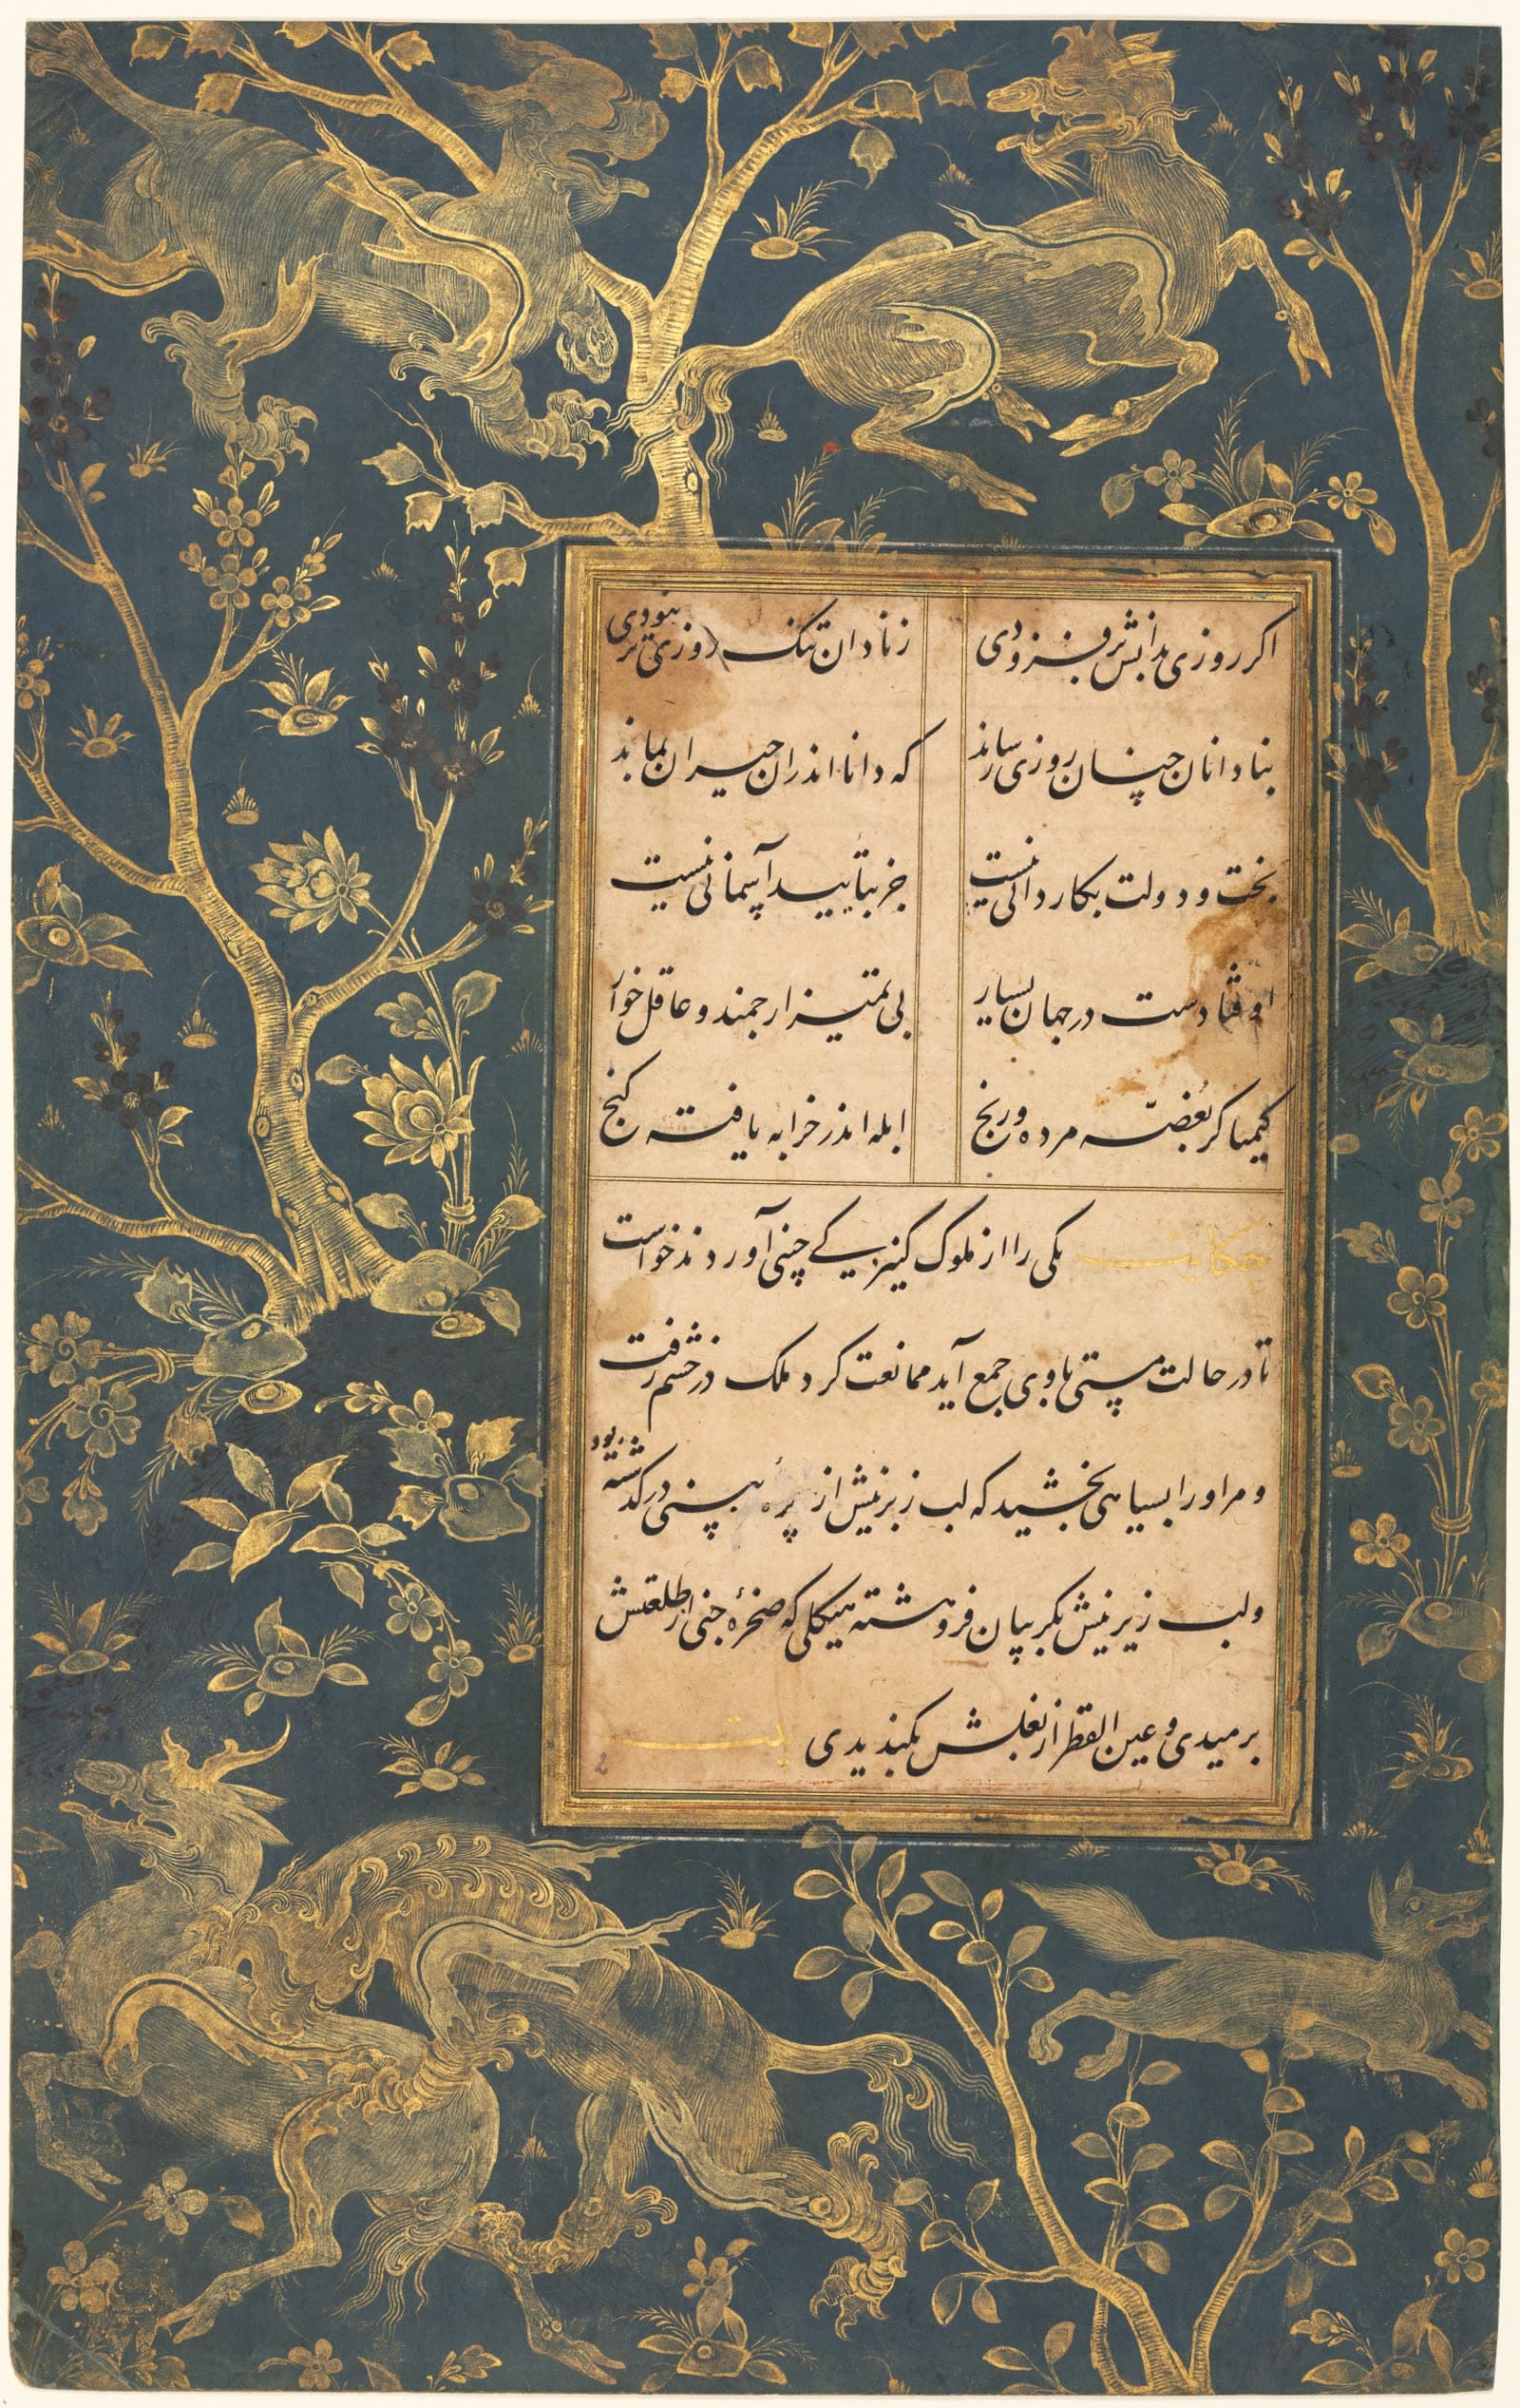 اکر روزی بدانش بر فزودی
زنادان تنک روزی تر نبودی
بنادانان چنان روزی رساند
که دانا اندران حیران بماند
بخت و دولت بکاردانی نیست
جز بتأیید آسمانی نیست
اوفتادست در جهان بسیار
بی تمیز ارجمند و عاقل خوار
کیمیاکر بغصه مرده و رنج
ابله اندر خرابه یافته کنج
حکایت یکی را از ملوک کنیزکی چینی آوردند خواست
تا در حالت مستی با وی جمع آید ممانعت کرد ملک در خشم رفت
و مر او را بسیاهی بخشید که لب زبرینش از پرهٔ بینی درکذشته بود
و لب زیرینش بکریبان فروهشته هیکلی که صخرهٔ جنی از طلعتش
برمیدی و عین القطر از بغلش بکندیدی بیت